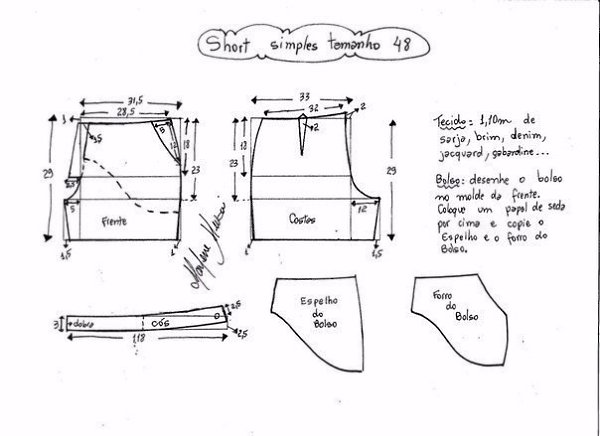 Short simples tamanho 48
31,5
28,5
1
1,5
8
12
18
23
29
5
Frente
1,5
1
33
32
2
2
12
18
23
29
12
Costas
1
1,5
Tecido: 1,10m de
sarja, brim, denim,
jacquard, gabardine...
Bolso: desenhe o bolso
no molde da frente.
Coloque um papel de seda
por cima e copie o
Espelho e o forro do
Bolso.
3
dobra
cós
2,5
2,5
1,18
Espelho
do
Bolso
Forro
do
Bolso